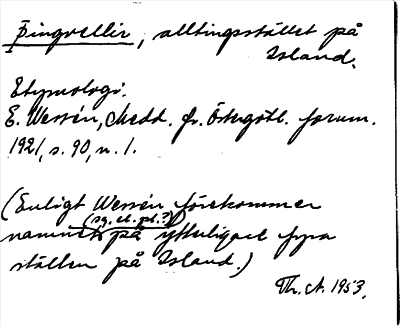 Þingvellir, alltingsstället på
Island.
Etymologi.
E. Wessén, Medd. fr. Östergötl. fornm.
1921, s. 90, n. 1.
(Enligt Wessén förekommer
(sg. el. pl.?)
namnet på ytterligare fyra
ställen på Island.)
Th. A. 1953.